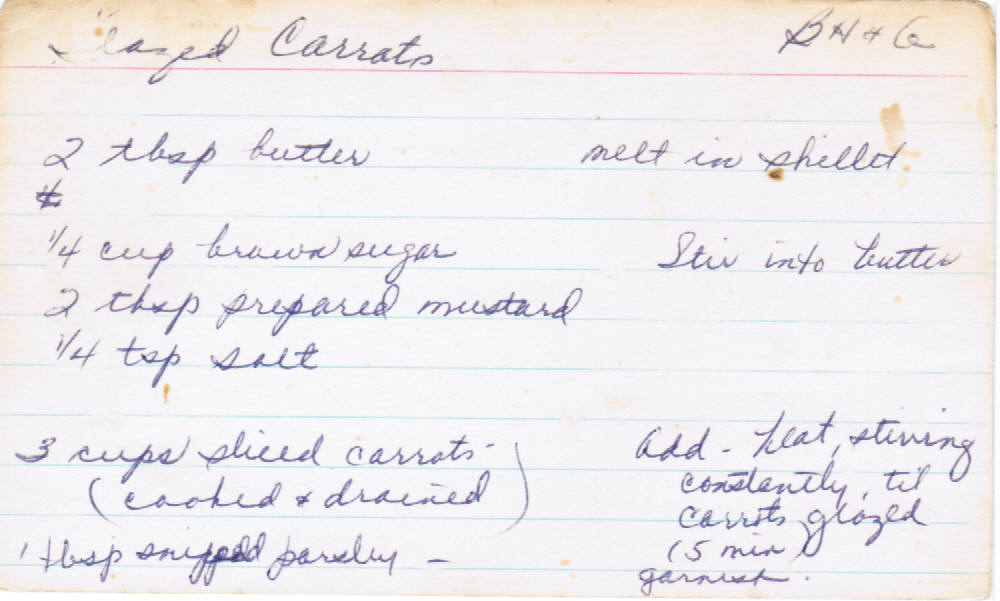 Glazed Carrots BH & G
2 tbsp butter melt in skillet
1/4 cup brown sugar Stir into butter
2 tbsp prepared mustard
1/4 tsp salt
3 cups sliced carrots - ) Add - heat, stirring
(cooked & drained constantly, til
carrots glazed
1 tbsp snipped parsley - (5 min)
garnish.